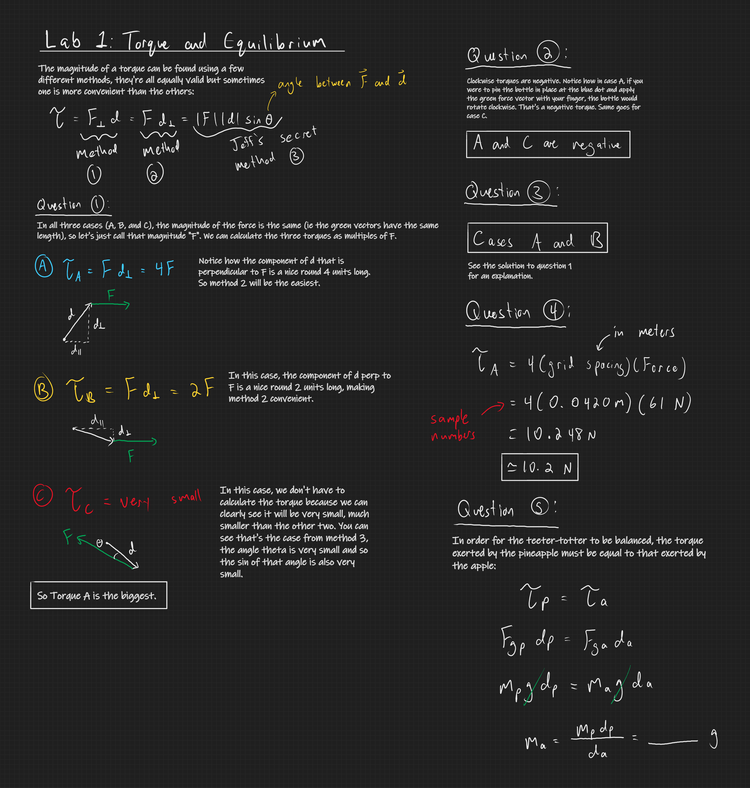 Lab 1: Torque and Equilibrium
The magnitude of a torque can be found using a few
different methods, they're all equally valid but sometimes
one is more convenient than the others:
angle between F⃗ and d⃗
τ = F⊥ d = F d⊥ = |F||d| sin θ
method ①
method ②
Jeff's secret
method ③
Question ①:
In all three cases (A, B, and C), the magnitude of the force is the same (ie the green vectors have the same
length), so let's just call that magnitude "F". We can calculate the three torques as multiples of F.
Ⓐ τA = F d⊥ = 4F
Notice how the component of d that is
perpendicular to F is a nice round 4 units long.
So method 2 will be the easiest.
F
d
d⊥
d||
Ⓑ τB = F d⊥ = 2F
In this case, the component of d perp to
F is a nice round 2 units long, making
method 2 convenient.
d||
d⊥
F
Ⓒ τC = very small
In this case, we don't have to
calculate the torque because we can
clearly see it will be very small, much
smaller than the other two. You can
see that's the case from method 3,
the angle theta is very small and so
the sin of that angle is also very
small.
F
θ
d
So Torque A is the biggest.
Question ②:
Clockwise torques are negative. Notice how in case A, if you
were to pin the bottle in place at the blue dot and apply
the green force vector with your finger, the bottle would
rotate clockwise. That's a negative torque. Same goes for
case C.
A and C are negative
Question ③:
Cases A and B
See the solution to question 1
for an explanation.
Question ④:
in meters
τA = 4(grid spacing)(Force)
sample
numbers
= 4(0.0420m)(61 N)
= 10.248 N
≃ 10.2 N
Question ⑤:
In order for the teeter-totter to be balanced, the torque
exerted by the pineapple must be equal to that exerted by
the apple:
τp = τa
Fgp dp = Fga da
mp g dp = ma g da
ma = mp dp / da = ____ g